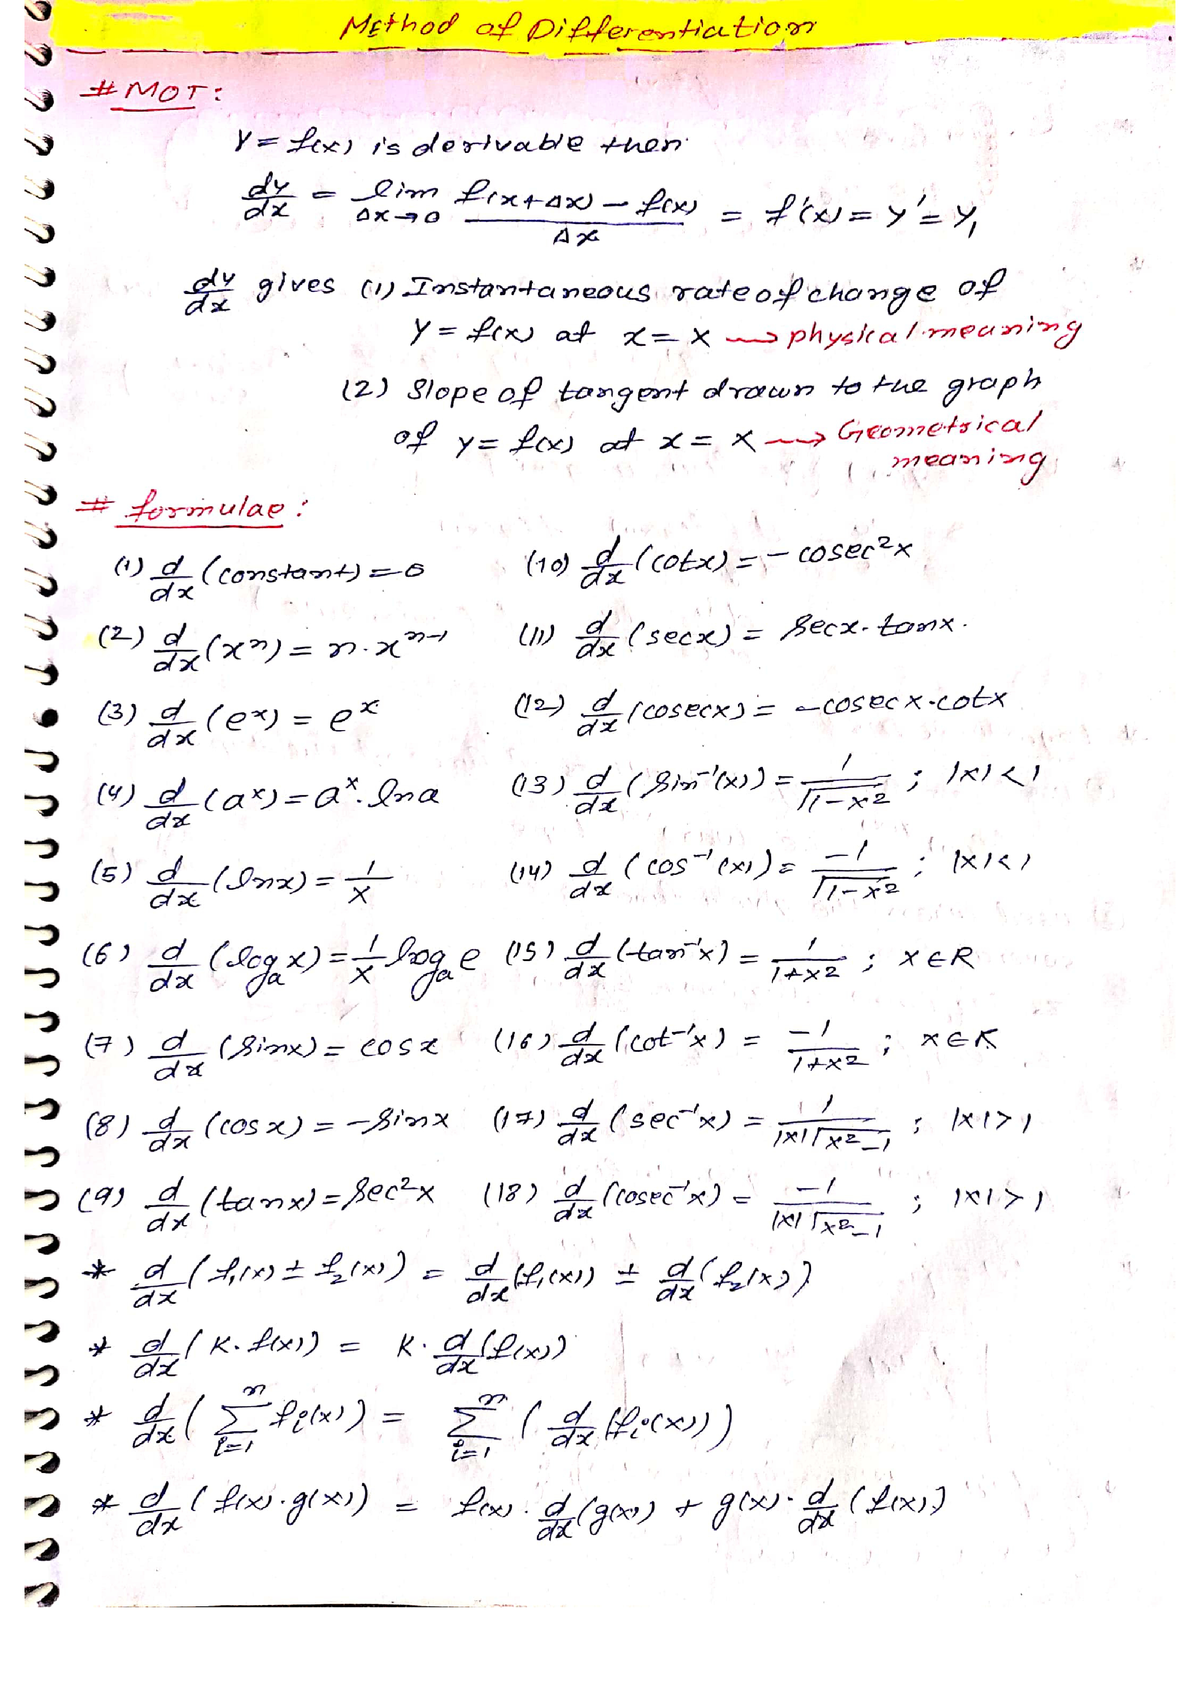 Method of Differentiation
# MOT:
y = f(x) is derivable then
dy/dx = lim Δx→0 (f(x+Δx) − f(x))/Δx = f'(x) = y' = y₁
dy/dx gives (1) Instantaneous rate of change of
y = f(x) at x = x ⟶ physical meaning
(2) Slope of tangent drawn to the graph
of y = f(x) at x = x ⟶ Geometrical
meaning
# formulae:
(1) d/dx (constant) = 0
(2) d/dx (xⁿ) = n·xⁿ⁻¹
(3) d/dx (eˣ) = eˣ
(4) d/dx (aˣ) = aˣ·ln a
(5) d/dx (ln x) = 1/x
(6) d/dx (logₐ x) = 1/x logₐ e
(7) d/dx (sinx) = cosx
(8) d/dx (cosx) = −sinx
(9) d/dx (tanx) = sec²x
(10) d/dx (cotx) = −cosec²x
(11) d/dx (secx) = secx·tanx.
(12) d/dx (cosecx) = −cosecx·cotx
(13) d/dx (sin⁻¹(x)) = 1/√(1−x²) ; |x| < 1
(14) d/dx (cos⁻¹(x)) = −1/√(1−x²) ; |x| < 1
(15) d/dx (tan⁻¹x) = 1/(1+x²) ; x ∈ R
(16) d/dx (cot⁻¹x) = −1/(1+x²) ; x ∈ R
(17) d/dx (sec⁻¹x) = 1/(|x|√(x²−1)) ; |x| > 1
(18) d/dx (cosec⁻¹x) = −1/(|x|√(x²−1)) ; |x| > 1
* d/dx (f₁(x) ± f₂(x)) = d/dx (f₁(x)) ± d/dx (f₂(x))
* d/dx (K·f(x)) = K·d/dx (f(x))
* d/dx (∑ᵢ₌₁ⁿ fᵢ(x)) = ∑ᵢ₌₁ⁿ (d/dx (fᵢ(x)))
* d/dx (f(x)·g(x)) = f(x)·d/dx (g(x)) + g(x)·d/dx (f(x))